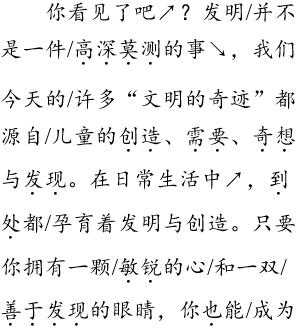 你看见了吧↗？发明/并不
是一件/高深莫测的事↘，我们
今天的/许多“文明的奇迹”都
源自/儿童的创造、需要、奇想
与发现。在日常生活中↗，到
处都/孕育着发明与创造。只要
你拥有一颗/敏锐的心/和一双/
善于发现的眼睛，你也能/成为